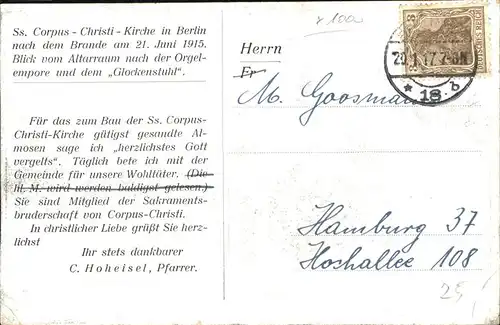 Ss. Corpus-Christi-Kirche in Berlin
nach dem Brande am 21. Juni 1915.
Blick vom Altarraum nach der Orgel-
empore und dem „Glockenstuhl“.
Für das zum Bau der Ss. Corpus-
Christi-Kirche gütigst gesandte Al-
mosen sage ich „herzlichstes Gott
vergelts“. Täglich bete ich mit der
Gemeinde für unsere Wohltäter. (Die
hl. M. wird werden baldigst gelesen.)
Sie sind Mitglied der Sakraments-
bruderschaft von Corpus-Christi.
In christlicher Liebe grüßt Sie herz-
lichst
Ihr stets dankbarer
C. Hoheisel, Pfarrer.
x 100
Herrn
Fr.
M. Goosmann
Hamburg 37
Hochallee 108
25
DEUTSCHES REICH
3
17.7-8N
* 18 b